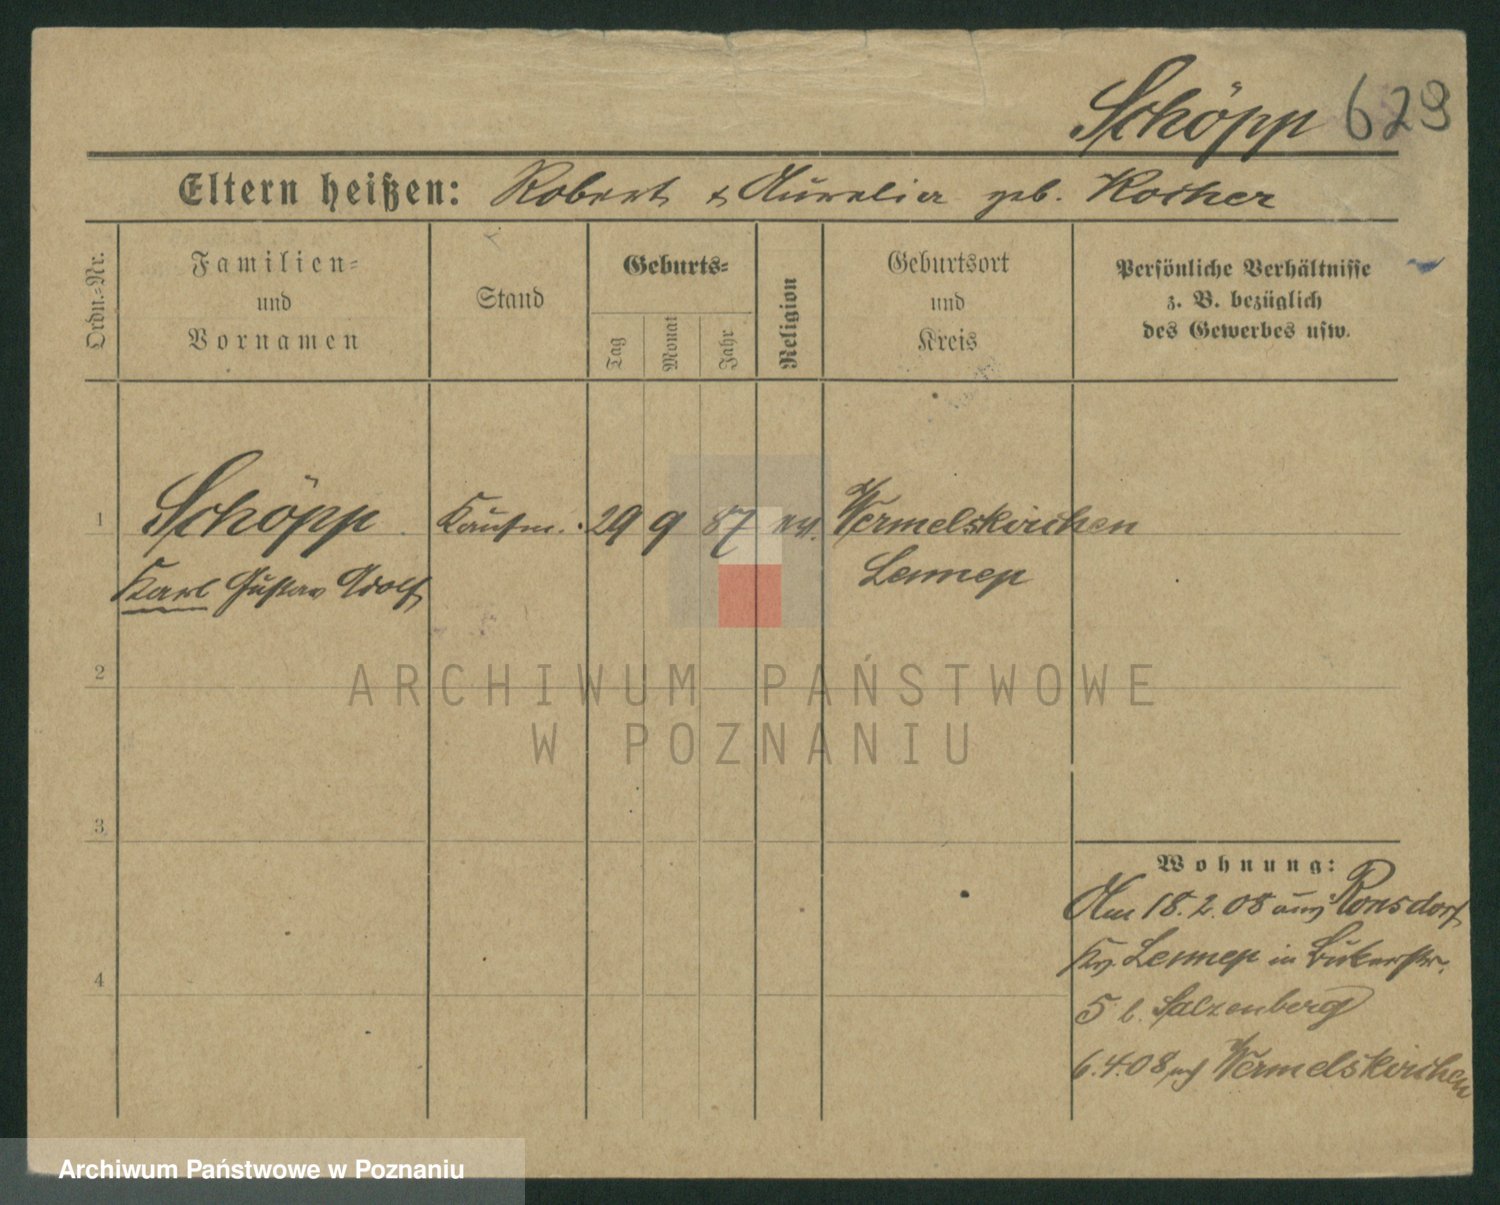 Schöpp 629
Eltern heißen: Robert & Aurelia geb. Kocher
Ordn.-Nr.
Familien-
und
Vornamen
Stand
Geburts-
Tag
Monat
Jahr
Religion
Geburtsort
und
Kreis
Persönliche Verhältnisse
z. B. bezüglich
des Gewerbes usw.
1 Schöpp Kaufm. 29 9 87 Wermelskirchen
Karl Gustav Adolf Lennep
2
3
4
Wohnung:
Am 18.2.08 aus Ronsdorf
Kr. Lennep in
5 b. Salzenberg
6.4.08 Wermelskirchen
ARCHIWUM PAŃSTWOWE
W POZNANIU
Archiwum Państwowe w Poznaniu